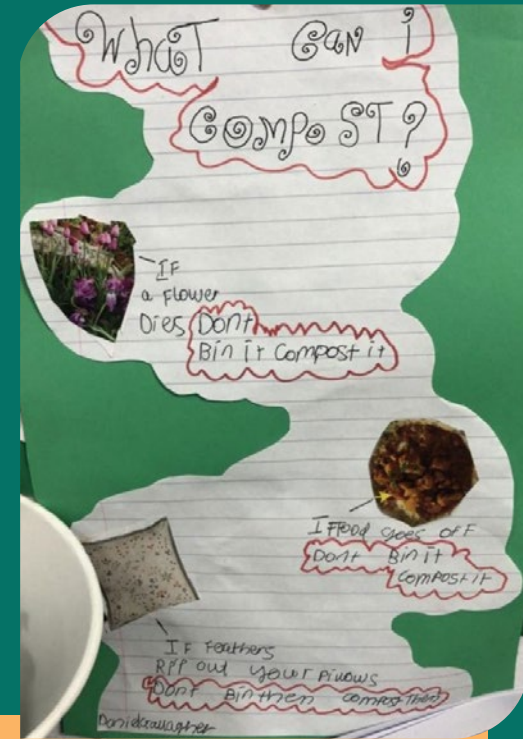 WhaT Can i
COMPoST?
IF
a Flower
Dies Dont
Bin it Compost it
IF Food goes off
Dont Bin it
compost it
IF Feathers
RIP out your Pillows
Dont Bin then compost Them
Daniel Gallagher